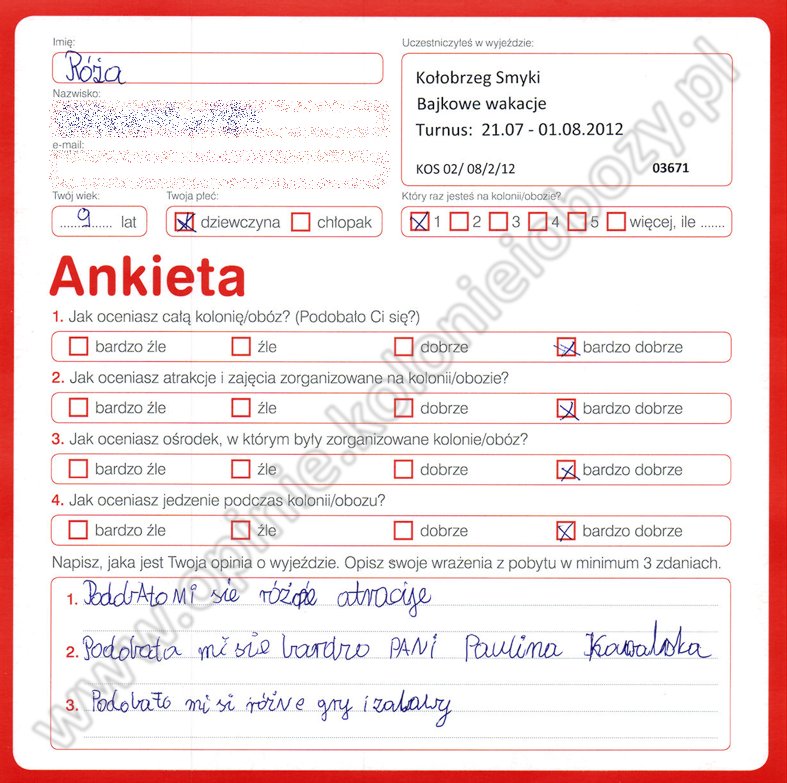 Imię:
Róża
Uczestniczyłeś w wyjeździe:
Kołobrzeg Smyki
Bajkowe wakacje
Turnus: 21.07 - 01.08.2012
KOS 02/ 08/2/12 03671
Nazwisko:
e-mail:
Twój wiek:
9 lat
Twoja płeć:
dziewczyna chłopak
Który raz jesteś na kolonii/obozie?
1 2 3 4 5 więcej, ile .......
Ankieta
1. Jak oceniasz całą kolonię/obóz? (Podobało Ci się?)
bardzo źle źle dobrze bardzo dobrze
2. Jak oceniasz atrakcje i zajęcia zorganizowane na kolonii/obozie?
bardzo źle źle dobrze bardzo dobrze
3. Jak oceniasz ośrodek, w którym były zorganizowane kolonie/obóz?
bardzo źle źle dobrze bardzo dobrze
4. Jak oceniasz jedzenie podczas kolonii/obozu?
bardzo źle źle dobrze bardzo dobrze
Napisz, jaka jest Twoja opinia o wyjeździe. Opisz swoje wrażenia z pobytu w minimum 3 zdaniach.
1. MI sie atracije
2. Podobała mi sie bardzo PANI Paulina Kowalska
3. Podobało mi si różne gry i zabawy
www.opinie.kolonieiobozy.pl